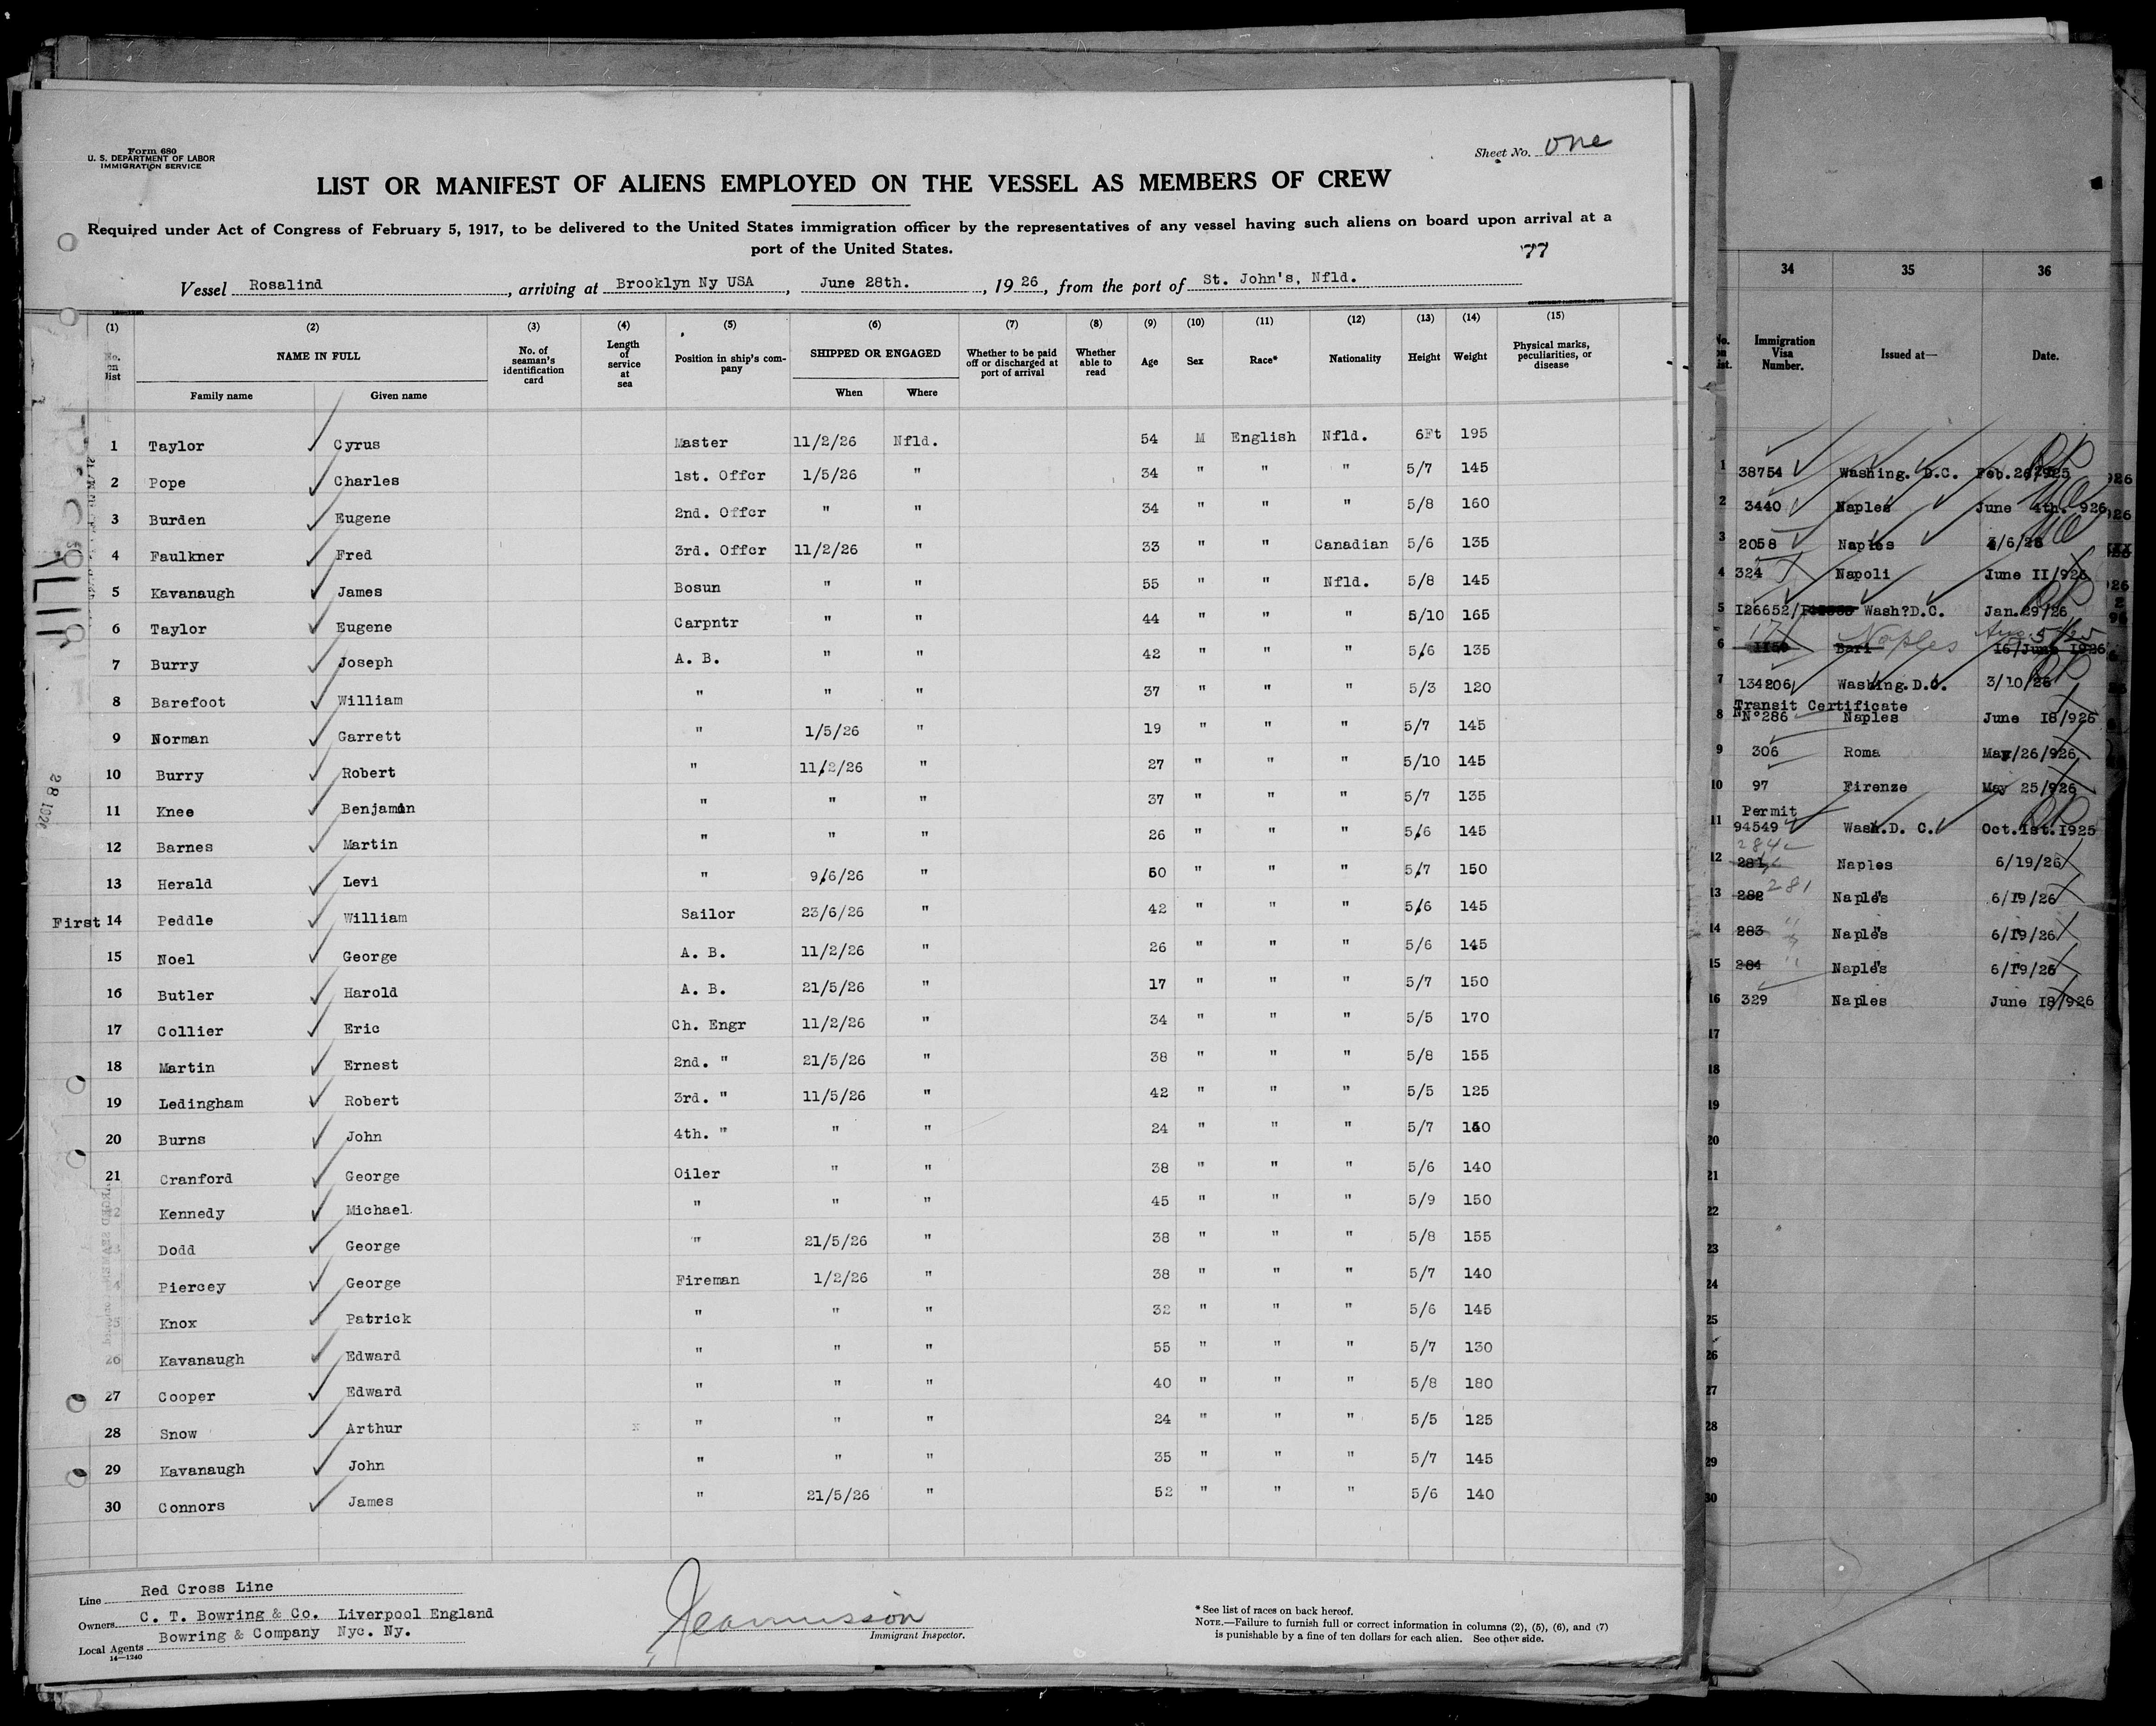 Form 680
U. S. DEPARTMENT OF LABOR
IMMIGRATION SERVICE
Sheet No. one
LIST OR MANIFEST OF ALIENS EMPLOYED ON THE VESSEL AS MEMBERS OF CREW
Required under Act of Congress of February 5, 1917, to be delivered to the United States immigration officer by the representatives of any vessel having such aliens on board upon arrival at a
port of the United States.
77
Vessel Rosalind, arriving at Brooklyn Ny USA, June 28th., 1926, from the port of St. John's, Nfld.
(1) (2) (3) (4) (5) (6) (7) (8) (9) (10) (11) (12) (13) (14) (15)
No. on list NAME IN FULL No. of seaman's identification card Length of service at sea Position in ship's company SHIPPED OR ENGAGED Whether to be paid off or discharged at port of arrival Whether able to read Age Sex Race* Nationality Height Weight Physical marks, peculiarities, or disease
Family name Given name When Where
1 Taylor Cyrus Master 11/2/26 Nfld. 54 M English Nfld. 6Ft 195
2 Pope Charles 1st. Offcr 1/5/26 " 34 " " " 5/7 145
3 Burden Eugene 2nd. Offcr " " 34 " " " 5/8 160
4 Faulkner Fred 3rd. Offcr 11/2/26 " 33 " " Canadian 5/6 135
5 Kavanaugh James Bosun " " 55 " " Nfld. 5/8 145
6 Taylor Eugene Carpntr " " 44 " " " 5/10 165
7 Burry Joseph A. B. " " 42 " " " 5/6 135
8 Barefoot William " " " 37 " " " 5/3 120
9 Norman Garrett " 1/5/26 " 19 " " " 5/7 145
10 Burry Robert " 11/2/26 " 27 " " " 5/10 145
11 Knee Benjamin " " " 37 " " " 5/7 135
12 Barnes Martin " " " 26 " " " 5/6 145
13 Herald Levi " 9/6/26 " 50 " " " 5/7 150
First 14 Peddle William Sailor 23/6/26 " 42 " " " 5/6 145
15 Noel George A. B. 11/2/26 " 26 " " " 5/6 145
16 Butler Harold A. B. 21/5/26 " 17 " " " 5/7 150
17 Collier Eric Ch. Engr 11/2/26 " 34 " " " 5/5 170
18 Martin Ernest 2nd. " 21/5/26 " 38 " " " 5/8 155
19 Ledingham Robert 3rd. " 11/5/26 " 42 " " " 5/5 125
20 Burns John 4th. " " " 24 " " " 5/7
21 Cranford George Oiler " " 38 " " " 5/6 140
Kennedy Michael " " " 45 " " " 5/9 150
Dodd George " 21/5/26 " 38 " " " 5/8 155
Piercey George Fireman 1/2/26 " 38 " " " 5/7 140
Knox Patrick " " " 32 " " " 5/6 145
26 Kavanaugh Edward " " " 55 " " " 5/7 130
27 Cooper Edward " " " 40 " " " 5/8 180
28 Snow Arthur " " " 24 " " " 5/5 125
29 Kavanaugh John " " " 35 " " " 5/7 145
30 Connors James " 21/5/26 " 52 " " " 5/6 140
Line Red Cross Line
Owners C. T. Bowring & Co. Liverpool England
Local Agents Bowring & Company Nyc. Ny.
14—1240
Immigrant Inspector.
* See list of races on back hereof.
NOTE.—Failure to furnish full or correct information in columns (2), (5), (6), and (7)
is punishable by a fine of ten dollars for each alien. See other side.
28 1926
34 35 36
No. on list. Immigration Visa Number. Issued at— Date.
1 38754 Washing. D.C. Feb. 26/925
2 3440 Naples June 4th. 926
3 2058 Naples /6/26
4 324 Napoli June II/926
5 I26652/ Wash?D.C. Jan.29/26
6 Bari Naples 16/June 1926
7 134206 Washing.D.C. 3/10/26
Transit Certificate
8 N°286 Naples June I8/926
9 306 Roma May/26/926
10 97 Firenze May 25/926
Permit
11 94549 Wash.D. C. Oct.Ist.I925
284
12 281 Naples 6/19/26
13 282 281 Naples 6/19/26
14 283 " Naples 6/19/26
15 284 " Naples 6/19/26
16 329 Naples June I8/926
17
18
19
20
21
22
23
24
25
26
27
28
29
30